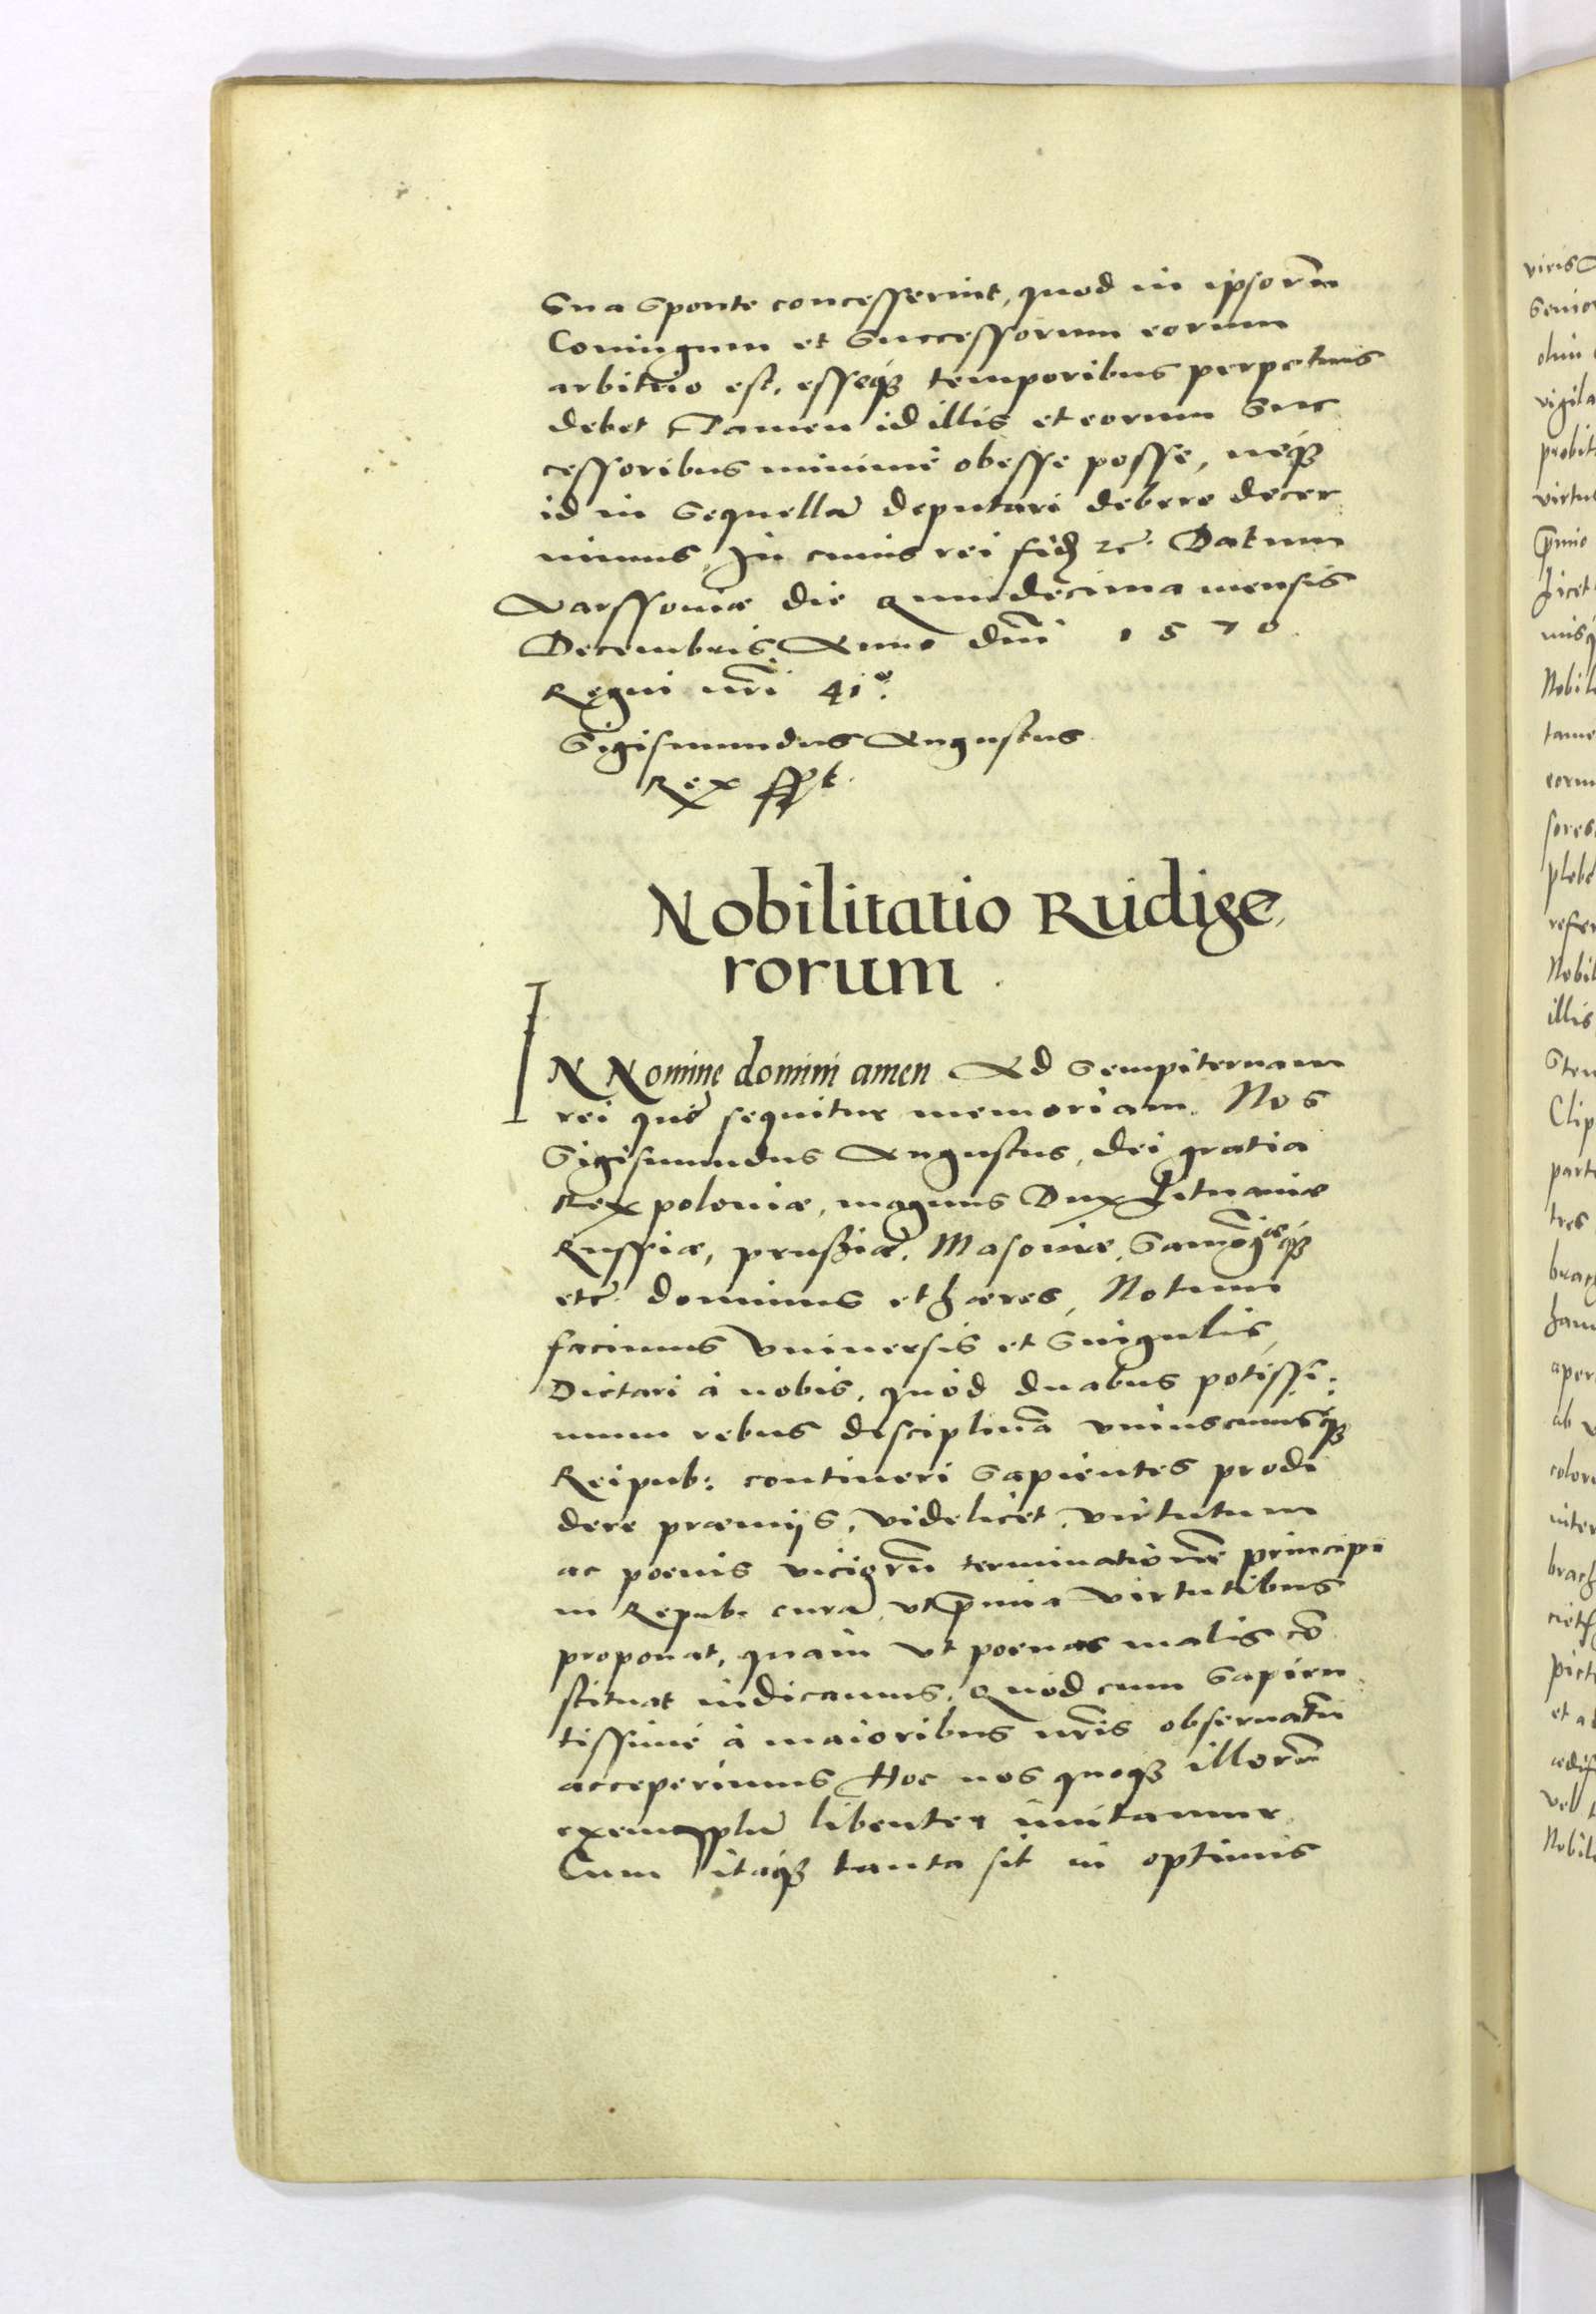 Sua Sponte concesserint, quod in ipsorũ
Coniugum et Successorum eorum
arbitrio est, esseq3 temporibus perpetuis
debet Tamen id illis et eorum Suc
cessoribus minimè obesse posse, neq3
id in Sequellã deputari debere decer
nimus, In cuius rei fidẽ ꝛc. Datum
Varssoviæ die Quindecima mensis
Decembris, Anno dñi 1570.
Regni nr̃i 41º.
Sigismundus Augustus
Rex sspt.
Nobilitatio Rudige
rorum.
IN Nomine domini amen Ad Sempiternam
rei quę sequitur memoriam. Nos
Sigismundus Augustus, dei gratia
Rex poloniæ, magnus Dux Lituaniæ
Russiæ, prussiæ, Masoviæ, Samogitiæq3
etc. dominus et hæres, Notum
facimus Vniuersis et Singulis,
Dictari à nobis, quòd duabus potissi:
mum rebus disciplinã vniuscuiusq3
Reipub: contineri Sapientes prodi
dere præmijs, videlicet, virtutum
ac poenis viciorũ terminationẽ principi
in Repub. curã, vt p̃mia virtutibus
proponat, quàm vt poenas malis cõ
stituat iudicamus. Quòd cum Sapien
tissimè à maioribus nr̃is obseruatũ
acceperimus Hoc nos quoq3 illorũ
exemplũ libenter imitamur
Cum itaq3 tanta sit in optimis
viris
Senio
olim
vigila
probit
virtu
p̃mio
licet
Nobil
tame
eorum
sores
plebe
refer
Nobil
illis
Clip
part
tres
aper
ab v
color
inter
brach
pict
et a
ædif
vel
Nobil